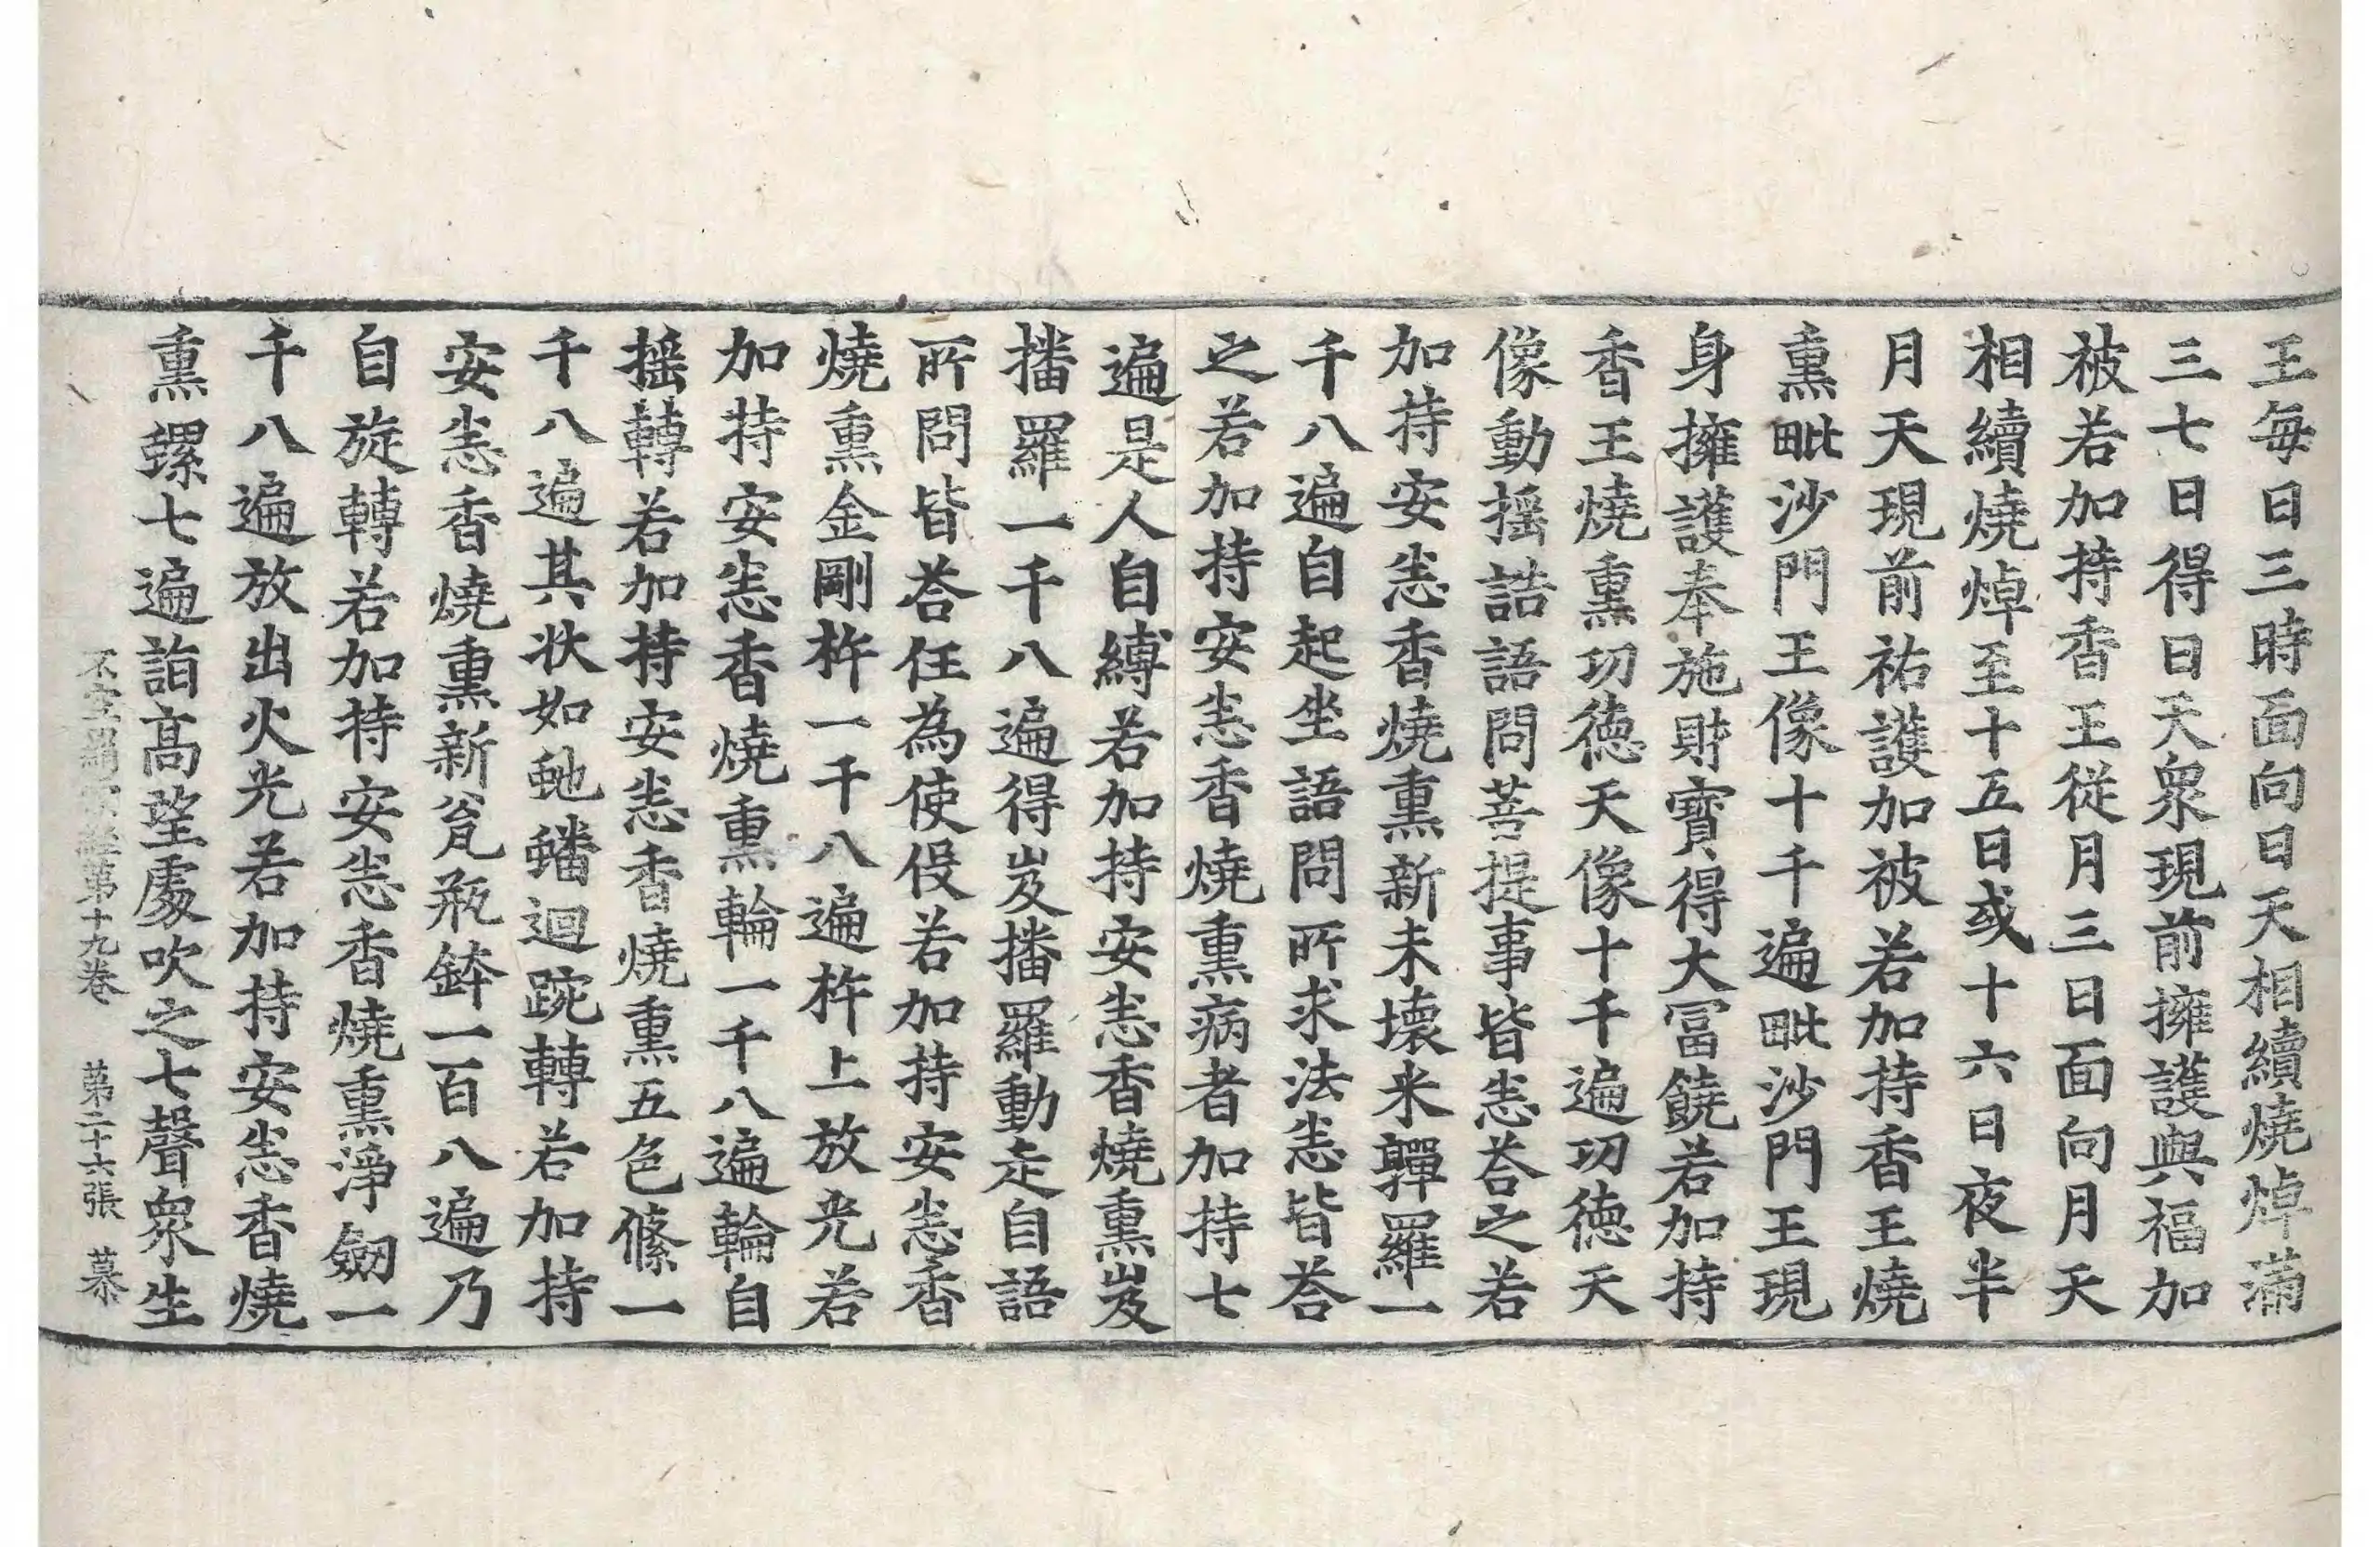 王每日三時面向日天相續燒焯滿
三七日得日天衆現前擁護與福加
被若加持香王從月三日面向月天
相續燒焯至十五日或十六日夜半
月天現前祐護加被若加持香王燒
熏毗沙門王像十千遍毗沙門王現
身擁護奉施財寶得大冨饒若加持
香王燒熏功德天像十千遍功德天
像動搖誥語問菩提事皆悉荅之若
加持安悉香燒熏新未壞米軃羅一
千八遍自起坐語問所求法悉皆荅
之若加持安悉香燒熏病者加持七
遍是人自縛若加持安悉香燒熏岌
播羅一千八遍得岌播羅動走自語
所問皆荅任為使伇若加持安悉香
燒熏金剛杵一千八遍杵上放光若
加持安悉香燒熏輪一千八遍輪自
搖轉若加持安悉香燒熏五色絛一
千八遍其狀如虵蟠迴踠轉若加持
安悉香燒熏新瓮瓶鉢一百八遍乃
自旋轉若加持安悉香燒熏淨劒一
千八遍放出火光若加持安悉香燒
熏螺七遍詣高望處吹之七聲衆生
不空羂索經第十九卷 第二十六張 慕